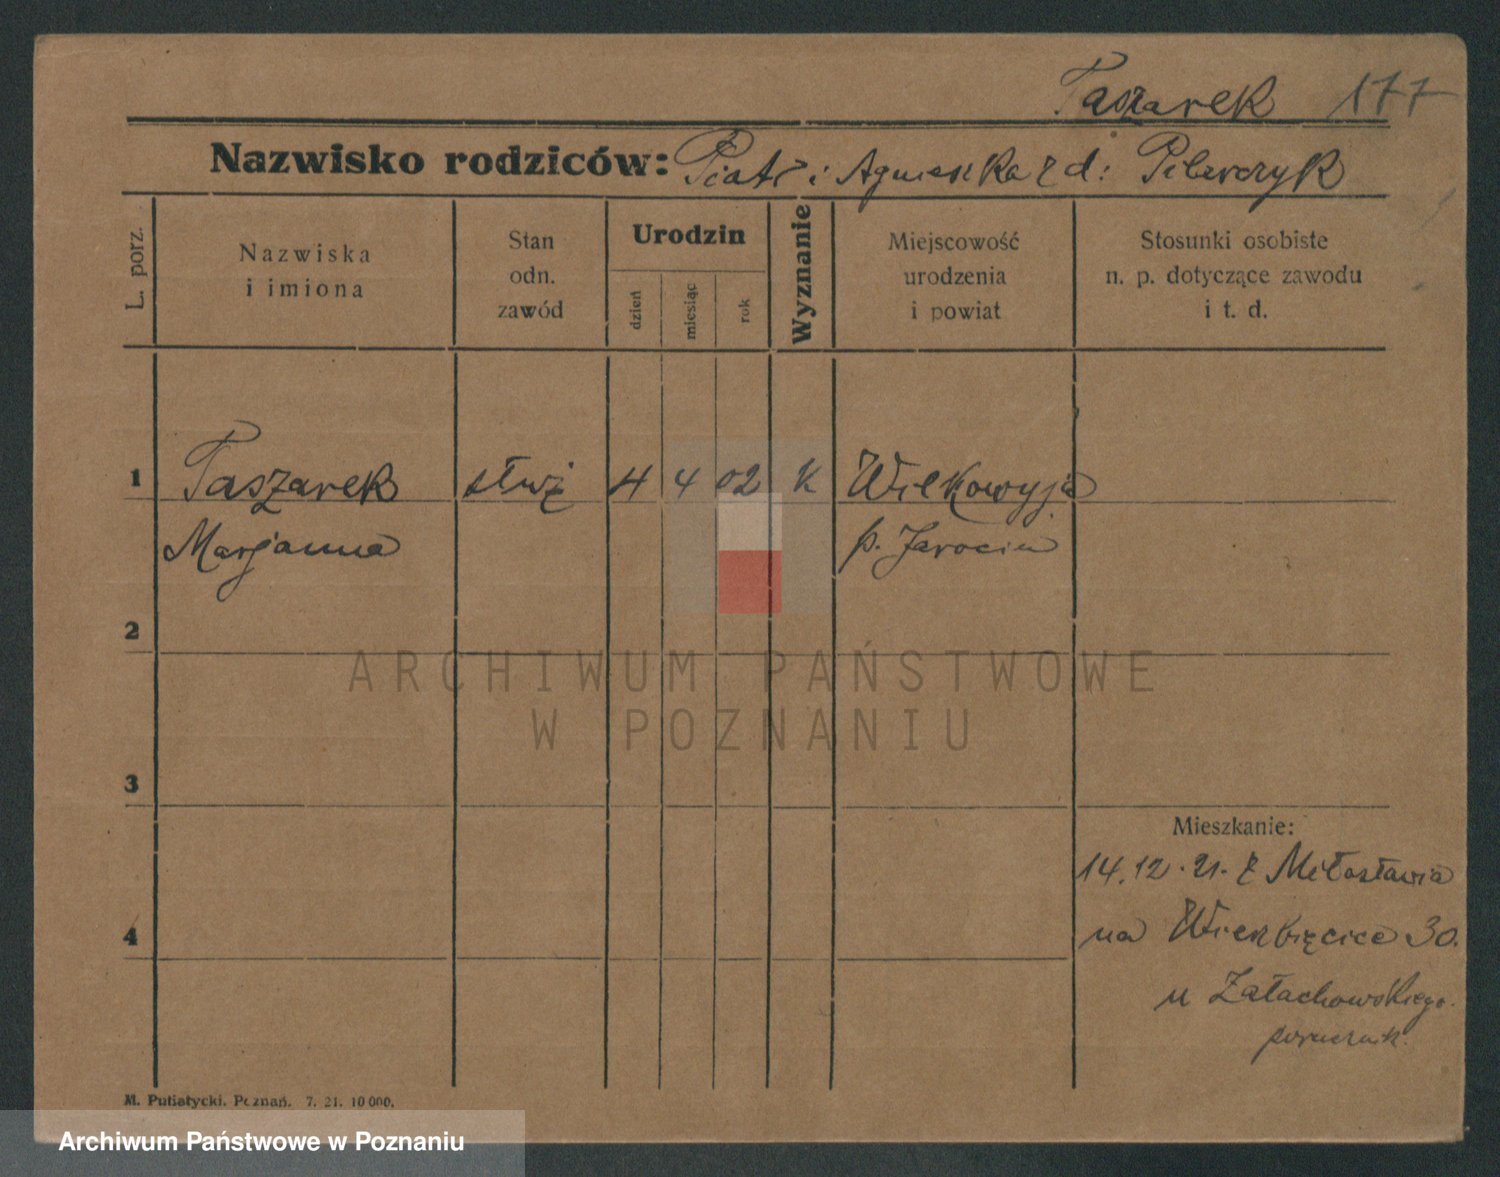 Taszarek 177
Nazwisko rodziców: Piotr i Agnieszka z d: Pilarczyk
L. porz.
Nazwiska
i imiona
Stan
odn.
zawód
Urodzin
dzień
miesiąc
rok
Wyznanie
Miejscowość
urodzenia
i powiat
Stosunki osobiste
n. p. dotyczące zawodu
i t. d.
1 Taszarek służ 4 4 02 K Wilkowyja
Marjanna p. Jarocin
2
3
4
Mieszkanie:
14.12.21. z Miłosławia
na Wierzbięcice 30.
u Załachowskiego.
porucznik.
M. Putiatycki. Poznań. 7. 21. 10 000.
ARCHIWUM PAŃSTWOWE
W POZNANIU
Archiwum Państwowe w Poznaniu